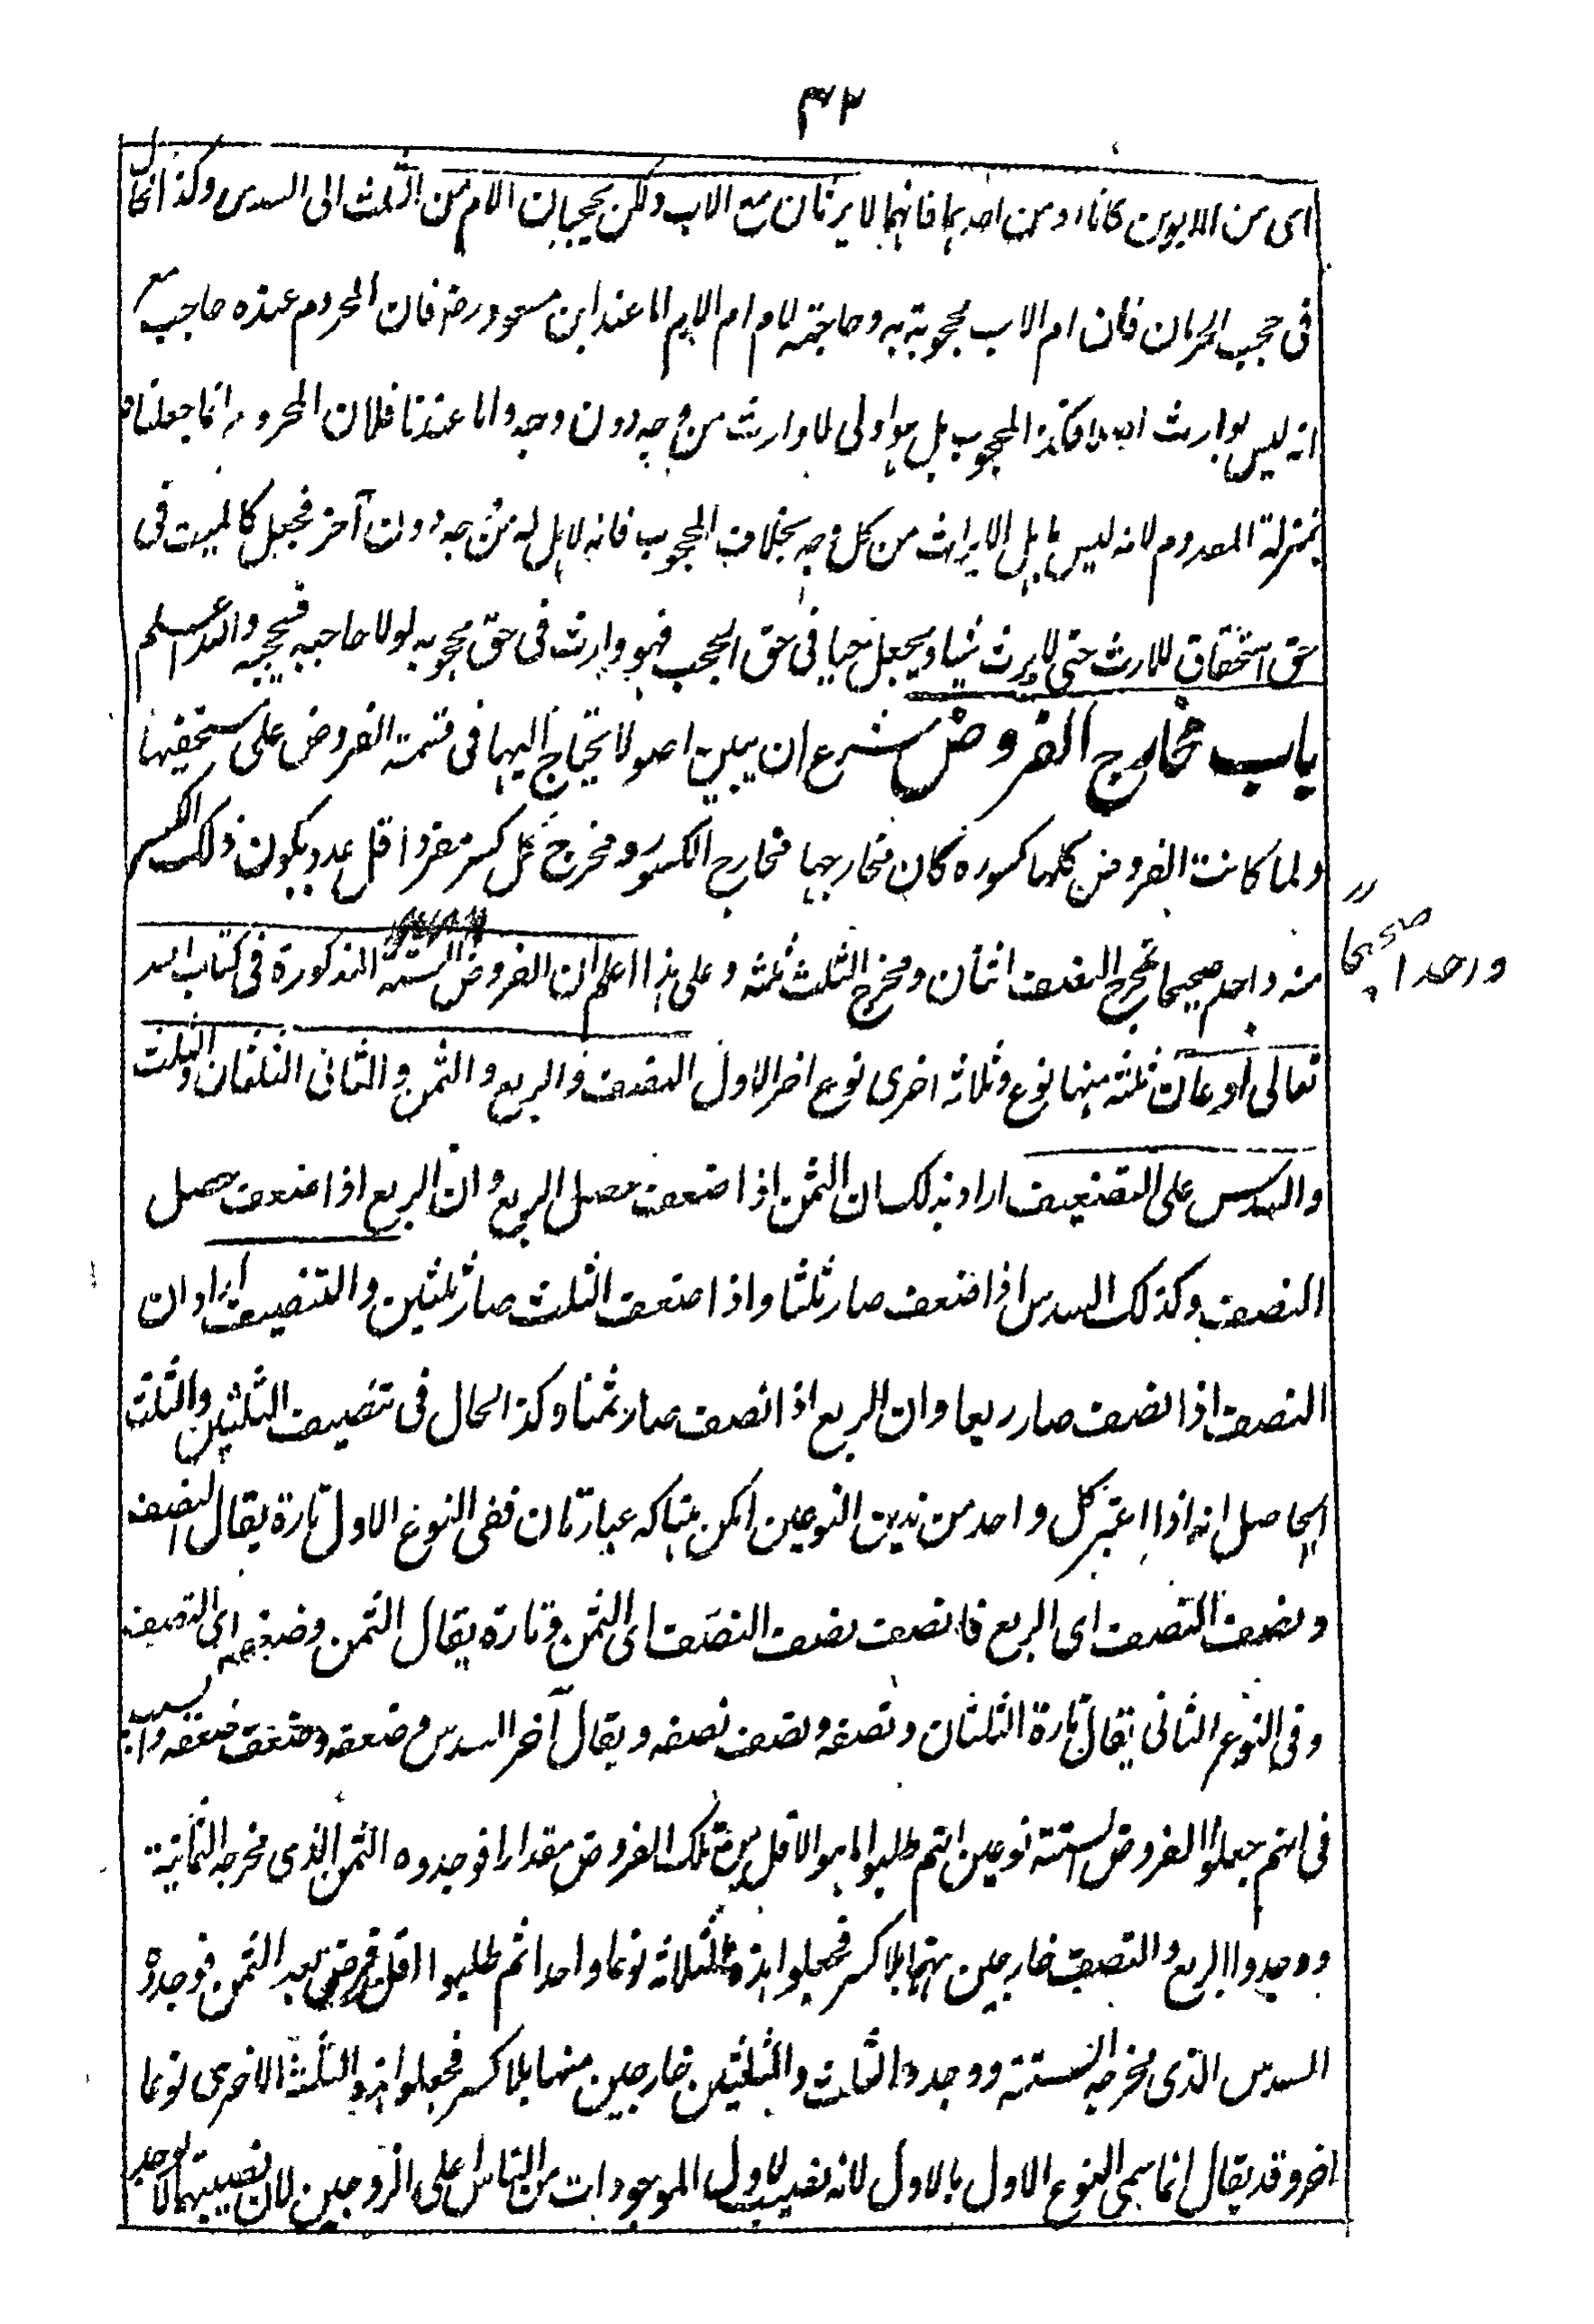 ٣٢
اى من الابوين كانا او من احدهما فانهما لا يرثان مع الاب ولكن يحجبان الام من الثلث الى السدس وكذا الحال
فى حجب الحرمان فان ام الاب محجوبة به وحاجبة لام ام الام اما عند ابن مسعود رضـ فان المحروم عنده حاجب مع
انه ليس بوارث اصلا فكذا المحجوب بل هو اولى لانه وارث من وجه دون وجه واما عندنا فلان المحروم انما جعلناه
بمنزلة المعدوم لانه ليس باهل الايراث من كل وجه بخلاف المحجوب فانه لاهل له من وجه دون آخر فجعل كالميت فى
حق استحقاق للارث حتى لا يرث شيئا ويجعل حيا فى حق الحجب فهو وارث فى حق محجوبه لولا حاجبه فيحجبه والله اعلم
باب مخارج الفروض شرع ان يبين اصولا يحتاج اليها فى قسمة الفروض على مستحقيها
ولما كانت الفروض كلها كسوره كان مخارجها مخارج الكسور ومخرج كل كسر مفرد اقل عدد يكون ذلك الكسر
منه واحد صحيحا فمخرج النصف اثنان ومخرج الثلث ثلثه وعلى هذا اعلم ان الفروض الستة المذكورة فى كتاب الله
ورحدا صحيحا
تعالى نوعان ثلثة منها نوع وثلاثه اخرى نوع اخر الاول النصف والربع والثمن والثانى الثلثان والثلث
والسدس على التضعيف اراد بذلك ان الثمن اذا ضعف حصل الربع وان الربع اذا ضعف حصل
النصف وكذلك السدس اذا ضعف صار ثلثا واذا ضعف الثلث صار ثلثين والتنصيف اراد ان
النصف اذا نصف صار ربعا وان الربع اذا نصف صار ثمنا وكذا الحال فى تنصيف الثلثين والثلث
الحاصل انه اذا اعتبر كل واحد من هذين النوعين امكن هناك عبارتان ففى النوع الاول تارة يقال النصف
ونصف النصف اى الربع فانصف نصف النصف اى الثمن وتارة يقال الثمن وضعفه اى النصف
وفى النوع الثانى يقال تارة الثلثان ونصفه ونصف نصفه ويقال آخر السدس وضعفه وضعف ضعفه والسبب
فى انهم جعلوا الفروض الستة نوعين انهم طلبوا ما هو الاقل من تلك الفروض مقدارا فوجدوه الثمن الذى مخرجه الثمانية
ووجدوا الربع والنصف خارجين منها بلا كسر فجعلوا هذه الثلاثه نوعا واحدا ثم طلبوا اقل فرض بعد الثمن فوجدوه
السدس الذى مخرجه الستة ووجدوا الثلث والثلثين خارجين منها بلا كسر فجعلوا هذه الثلثة الاخرى نوعا
اخر وقد يقال انما سمى النوع الاول بالاول لانه نصيب لاول الموجودات من الناس اعلى الزوجين لان نصيبهما لا يوجد